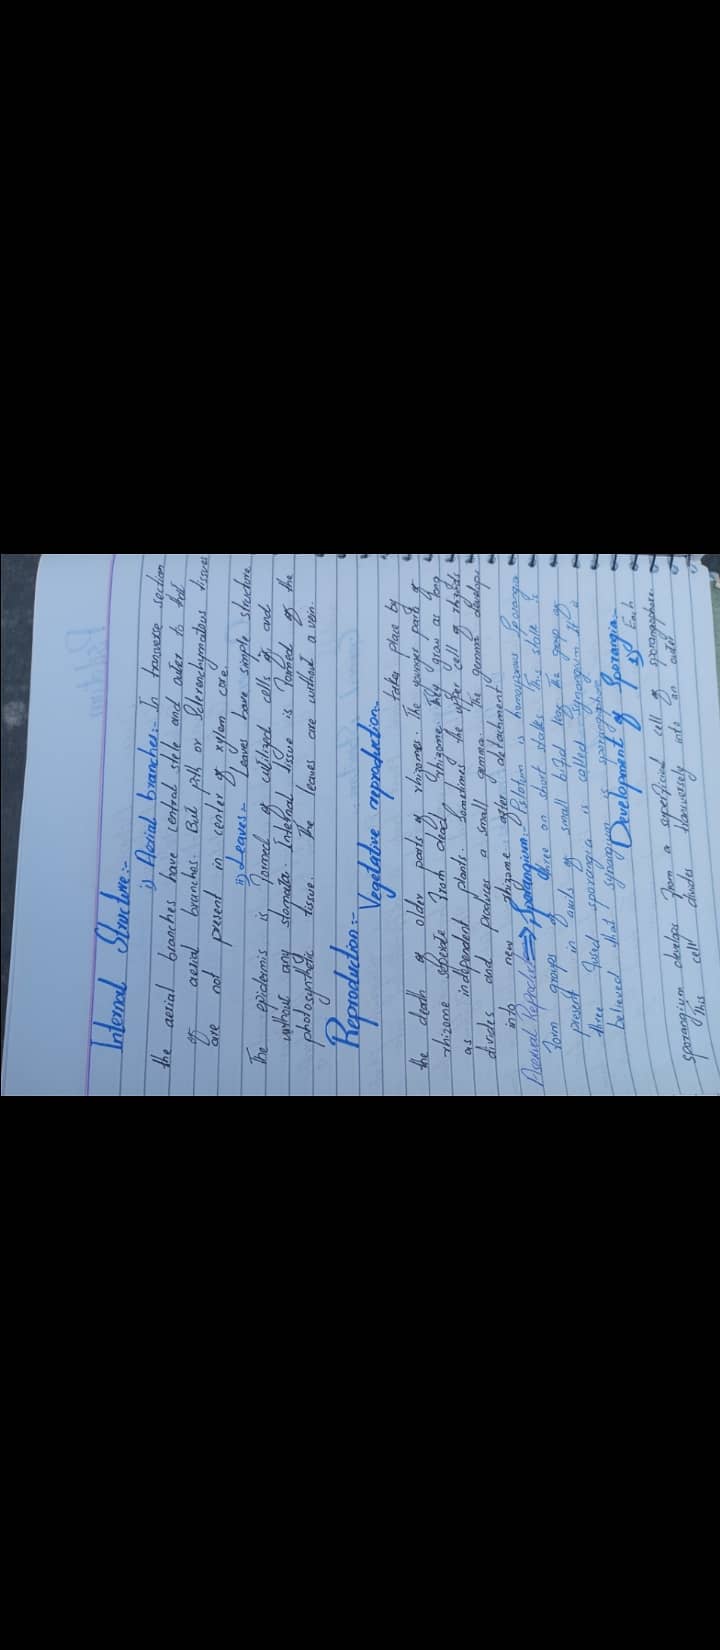 Internal Structure:-
i) Aerial branches:- In transverse section
the aerial branches have central stele and outer to that
of aerial branches. But pith or Sclerenchymatous tissues
are not present in center of xylem core.
ii) Leaves:- Leaves have simple structure
The epidermis is formed of cutilized cells and
without any stomata. Internal tissue is formed of the
photosynthetic tissue. The leaves are without a vein.
Reproduction:-
Vegetative reproduction:-
takes place by
the death of older parts of rhizomes. The younger parts of
rhizome seperate from dead rhizome. They grow as long
as independent plants. Sometimes the upper cell of
divides and produces a small gemma. The gemma develops
into new rhizome after detachment.
Aerial Reproduc ⇒ Sporangium:- Psilotum is homosporous Sporangia
form groups of three on short stalks. This stalk is
present in axils of small bifid leaf. The group of
three fused sporangia is called synangium. It is
believed that synangium is sporangiophore
Development of Sporangia:-
Each
sporangium develops from a superficial cell of sporangiophore.
This cell divides tranversely into an outer